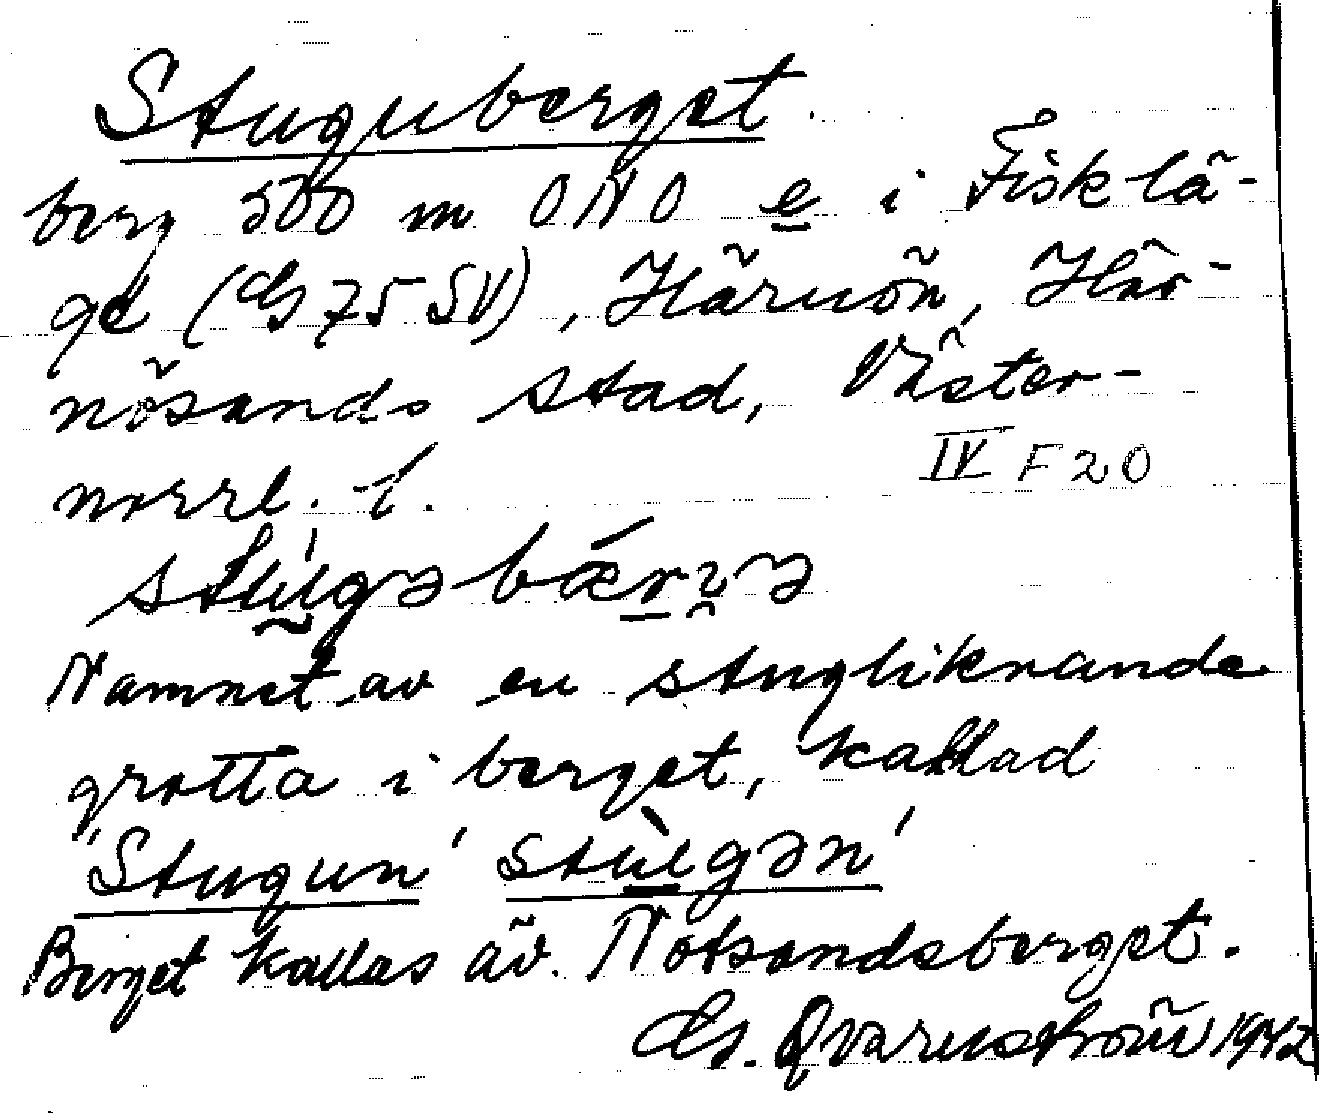 Stuguberget.
berg 500 m ONO e i Fisklä-
ge (Gs 75 SV), Härnön, Här-
nösands stad, Väster-
norrl. l. IV F20
Namnet av en stugliknande
grotta i berget, kallad
'Stugun' stu̠gən'
Berget kallas äv. Notsandsberget.
Gs. Qvarnström 1942